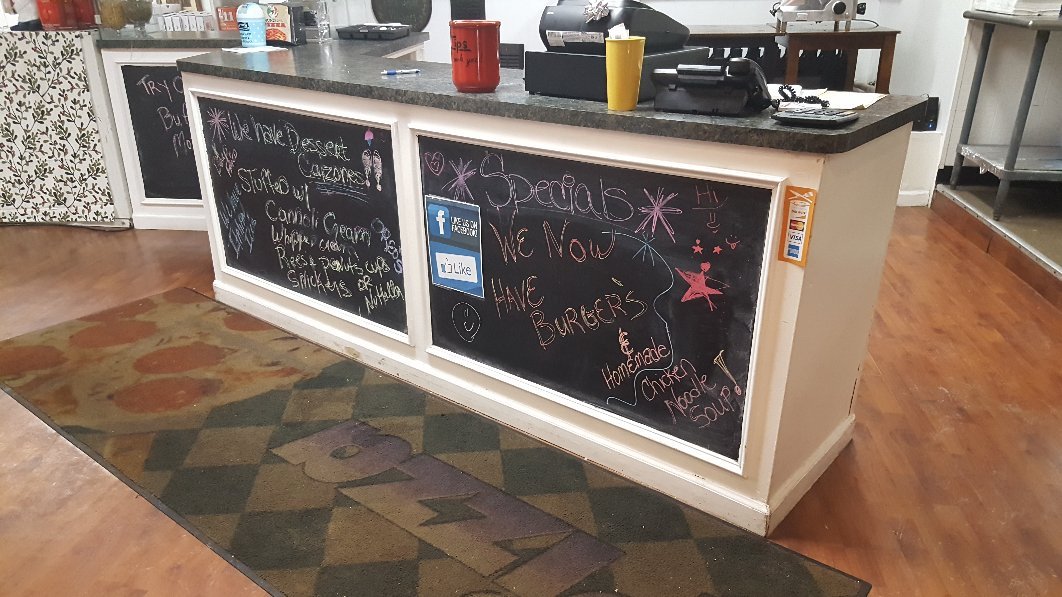 TRY O
Bu
Mo
We Have Dessert
Calzones
STUFFED w/
Cannoli Cream
Whipped cream
Reese's Peanuts cups
Snickers OR
Nutella
Specials
Hi
f LIKE US ON
FACEBOOK!
Like
WE NOW
HAVE
BURGER'S
&
Homemade
Chicken
Noodle
SOUP!
Tips
VISA
411
PIZZA